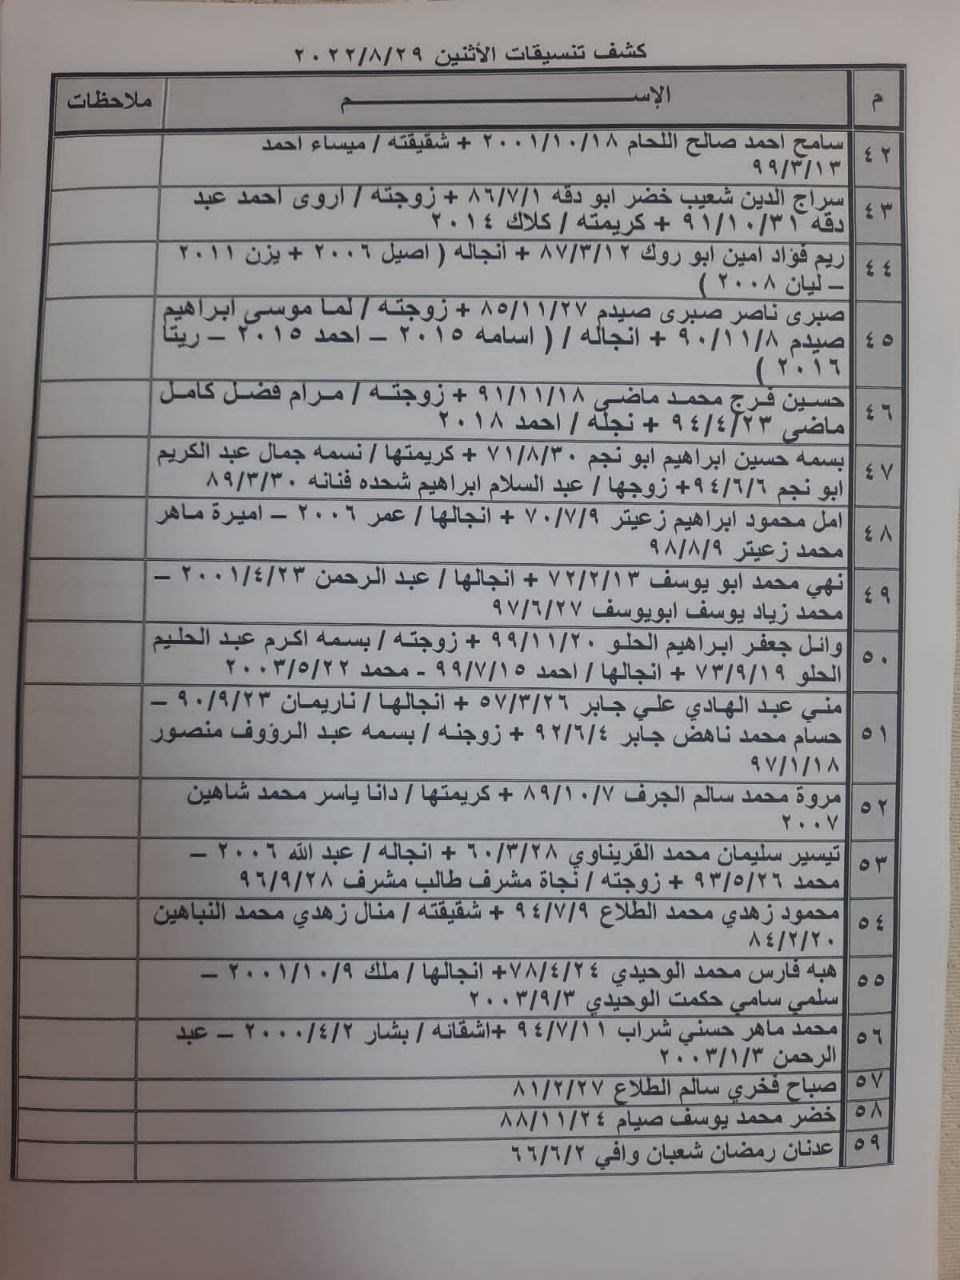 كشف تنسيقات الأثنين ٢٠٢٢/٨/٢٩
م الإســــــــــم ملاحظات
٤٢ سامح احمد صالح اللحام ٢٠٠١/١٠/١٨ + شقيقته / ميساء احمد
٩٩/٣/١٣
٤٣ سراج الدين شعيب خضر ابو دقه ٨٦/٧/١ + زوجته / اروى احمد عبد
دقه ٩١/١٠/٣١ + كريمته / كلاك ٢٠١٤
٤٤ ريم فؤاد امين ابو روك ٨٧/٣/١٢ + انجاله ( اصيل ٢٠٠٦ + يزن ٢٠١١
– ليان ٢٠٠٨ )
٤٥ صبرى ناصر صبرى صيدم ٨٥/١١/٢٧ + زوجته / لما موسى ابراهيم
صيدم ٩٠/١١/٨ + انجاله / ( اسامه ٢٠١٥ – احمد ٢٠١٥ – ريتا
٢٠١٦ )
٤٦ حسين فرج محمد ماضى ٩١/١١/١٨ + زوجته / مرام فضل كامل
ماضي ٩٤/٤/٢٣ + نجله / احمد ٢٠١٨
٤٧ بسمه حسين ابراهيم ابو نجم ٧١/٨/٣٠ + كريمتها / نسمه جمال عبد الكريم
ابو نجم ٩٤/٦/٦+ زوجها / عبد السلام ابراهيم شحده فنانه ٨٩/٣/٣٠
٤٨ امل محمود ابراهيم زعيتر ٧٠/٧/٩ + انجالها / عمر ٢٠٠٦ – اميرة ماهر
محمد زعيتر ٩٨/٨/٩
٤٩ نهي محمد ابو يوسف ٧٢/٢/١٣ + انجالها / عبد الرحمن ٢٠٠١/٤/٢٣ –
محمد زياد يوسف ابويوسف ٩٧/٦/٢٧
٥٠ وائل جعفر ابراهيم الحلو ٩٩/١١/٢٠ + زوجته / بسمه اكرم عبد الحليم
الحلو ٧٣/٩/١٩ + انجالها / احمد ٩٩/٧/١٥ - محمد ٢٠٠٣/٥/٢٢
٥١ مني عبد الهادي علي جابر ٥٧/٣/٢٦ + انجالها / ناريمان ٩٠/٩/٢٣ –
حسام محمد ناهض جابر ٩٢/٦/٤ + زوجته / بسمه عبد الرؤوف منصور
٩٧/١/١٨
٥٢ مروة محمد سالم الجرف ٨٩/١٠/٧ + كريمتها / دانا ياسر محمد شاهين
٢٠٠٧
٥٣ تيسير سليمان محمد القريناوي ٦٠/٣/٢٨ + انجاله / عبد الله ٢٠٠٦ –
محمد ٩٣/٥/٢٦ + زوجته / نجاة مشرف طالب مشرف ٩٦/٩/٢٨
٥٤ محمود زهدي محمد الطلاع ٩٤/٧/٩ + شقيقته / منال زهدي محمد النباهين
٨٤/٢/٢٠
٥٥ هبه فارس محمد الوحيدي ٧٨/٤/٢٤+ انجالها / ملك ٢٠٠١/١٠/٩ –
سلمي سامي حكمت الوحيدي ٢٠٠٣/٩/٣
٥٦ محمد ماهر حسني شراب ٩٤/٧/١١ +اشقائه / بشار ٢٠٠٠/٤/٢ – عبد
الرحمن ٢٠٠٣/١/٣
٥٧ صباح فخري سالم الطلاع ٨١/٢/٢٧
٥٨ خضر محمد يوسف صيام ٨٨/١١/٢٤
٥٩ عدنان رمضان شعبان وافي ٦٦/٦/٢